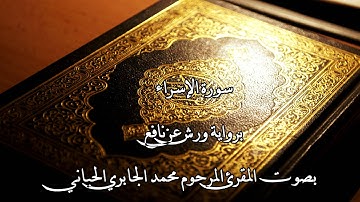 سورة الإسراء
برواية ورش عن نافع
بصوت المقرئ المرحوم محمد الجابري الحياني